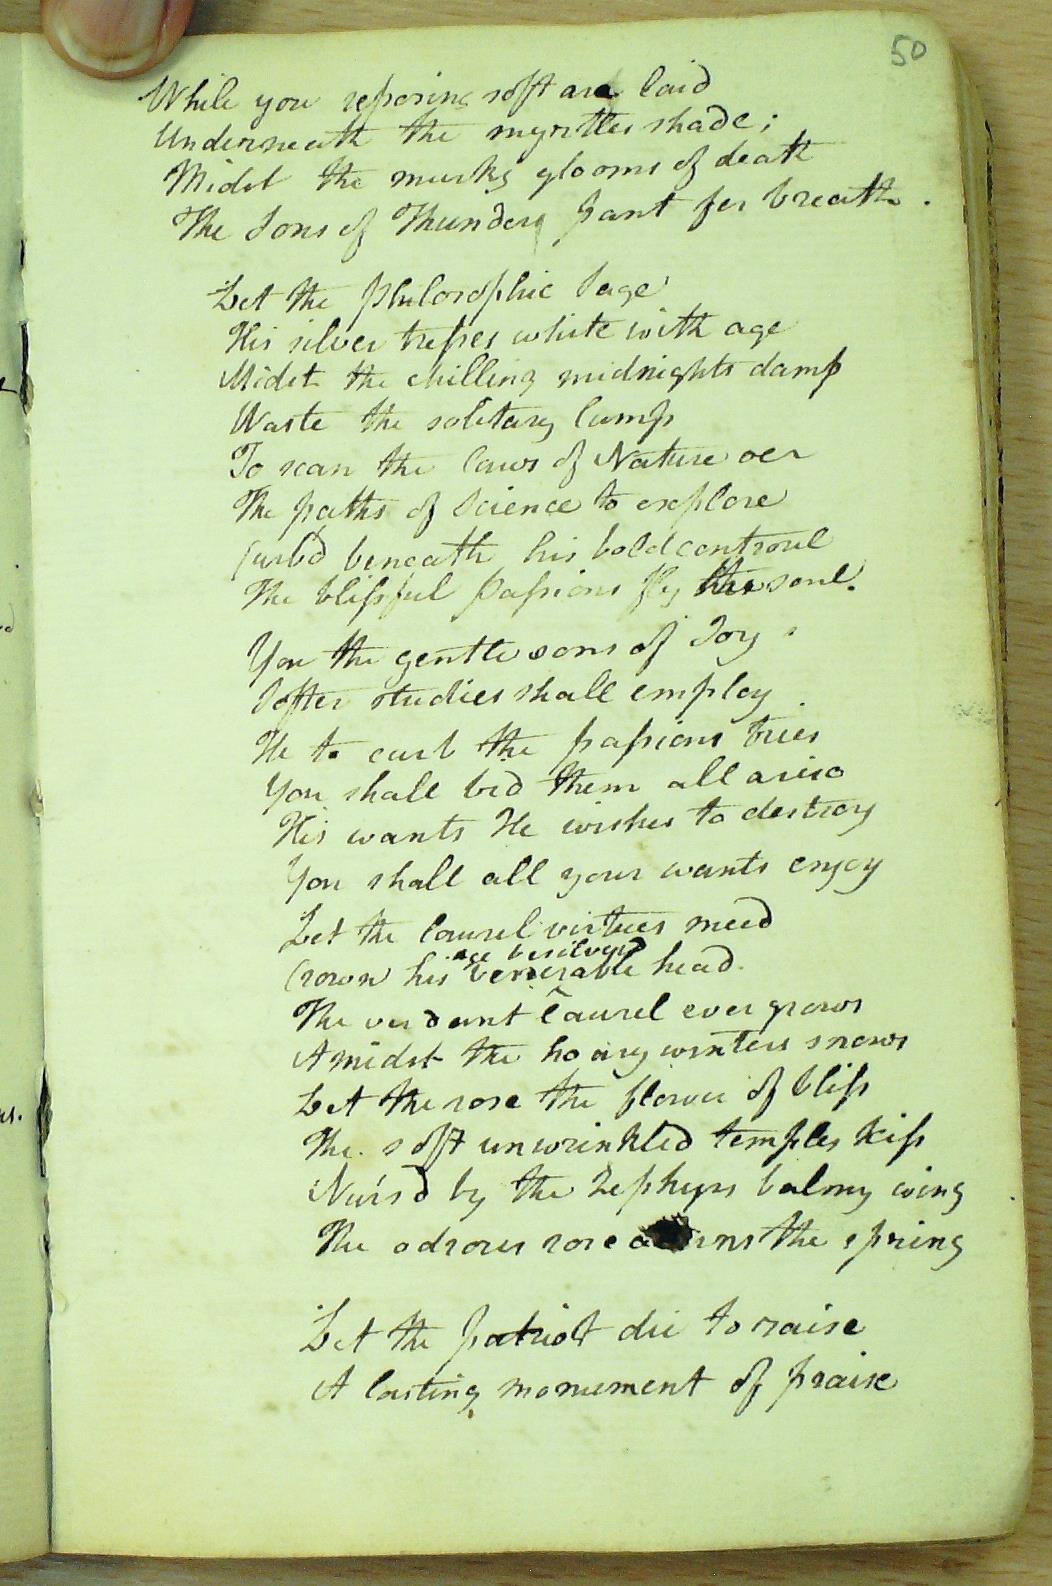 50
While you reposing soft are laid
Underneath the myrtles shade;
Midst the murky glooms of death
The Sons of Thunder pant for breath.
Let the Philosophic Sage
His silver tresses white with age
Midst the chilling midnights damp
Waste the solitary lamp
To scan the laws of Nature oer
The paths of Science to explore
Curb'd beneath his bold controul
The blissful Passions fly the soul.
You the gentle sons of Joy
Softer studies shall employ
He to curb the passions tries
You shall bid them all arise
His wants He wishes to destroy
You shall all your wants enjoy
Let the laurel virtues meed
age besilverd
Crown his venerable head.
The verdant Laurel ever grows
Amidst the hoary winters snows
Let the rose the flower of bliss
The soft unwrinkled temples kiss
Nurs'd by the Zephyrs balmy wing
The odrous rose adorns the spring
Let the patriot die to raise
A lasting monument of praise